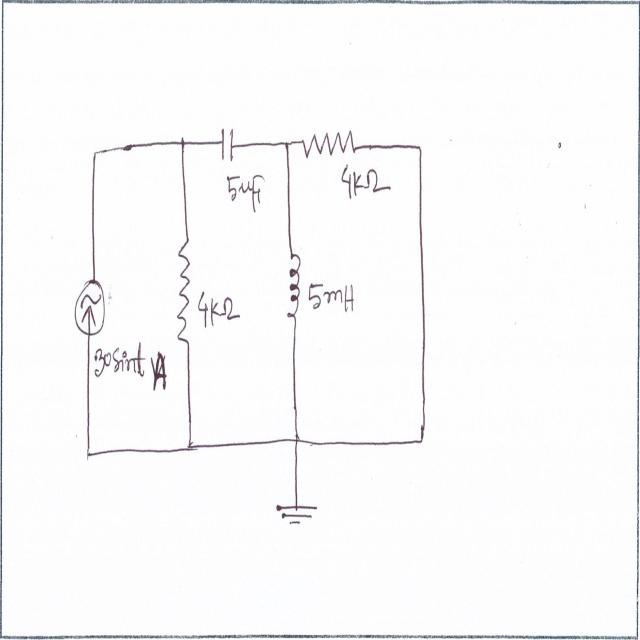 5uf
4KΩ
4KΩ
5mH
30sint A